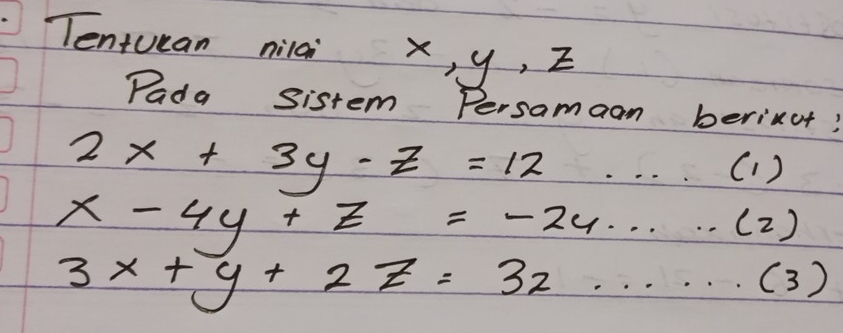 Tentukan nilai x, y, z
Pada sistem Persamaan berikut:
2x + 3y - z = 12 .... (1)
x - 4y + z = -24...... (2)
3x + y + 2z = 32 ....... (3)